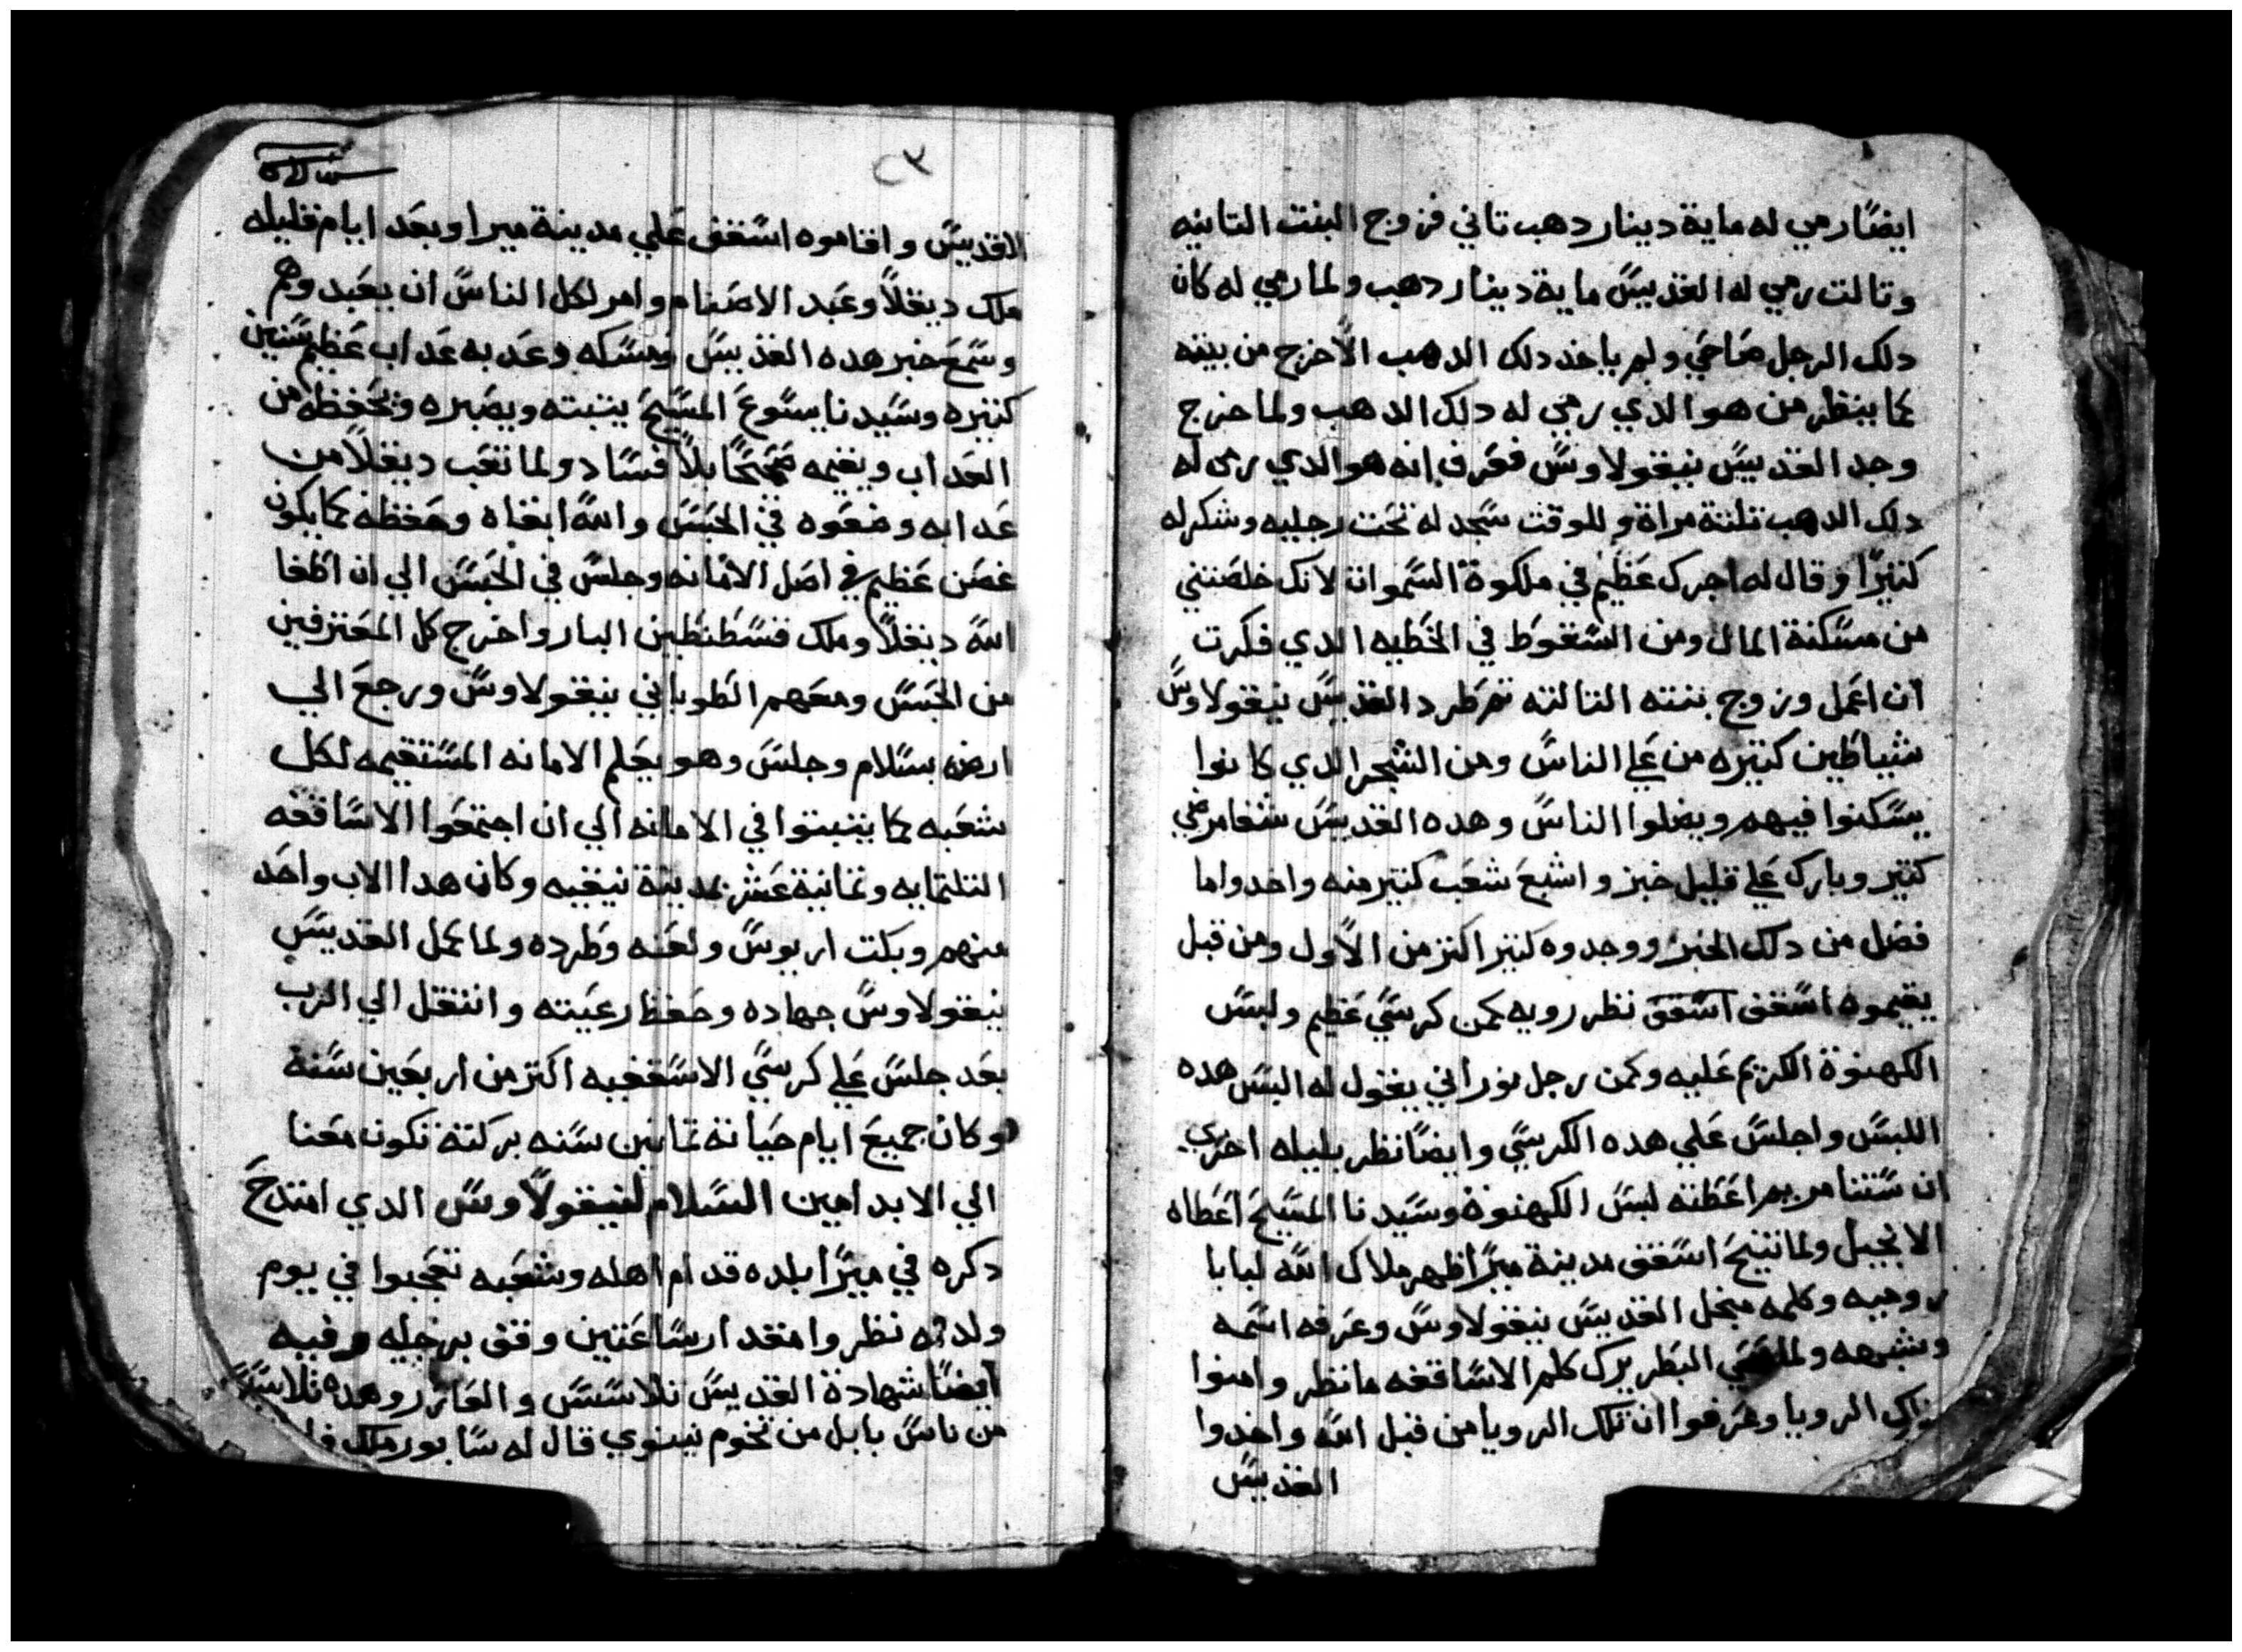 ايضا رمي له ماية دينار دهب تاني فزوج البنت التانيه
وتالت رمي له القديس ماية دينار دهب ولما رمي له كان
دلك الرجل صاحي ولم ياخد دلك الدهب الا خرج من بيته
كما ينظر من هو الدي رمي له دلك الدهب ولما خرج
وجد القديس نيقولاوس فعرف انه هو الدي رمى له
دلك الدهب تلتة مراة وللوقت سجد له تحت رجليه وشكر له
كتيرا وقال له اجرك عظيم في ملكوة السموات لانك خلصتني
من مسكنة المال ومن السقوط في الخطيه الدي فكرت
ان اعمل وزوج بنته التالته تم طرد القديس نيقولاوس
شياطين كتيره من علي الناس ومن الشجر الدي كانوا
يسكنوا فيهم ويضلوا الناس وهده القديس شفا مرضي
كتير وبارك علي قليل خبز واشبع شعب كتير منه واخدوا ما
فضل من دلك الخبز ووجدوه كتير اكتر من الاول ومن قبل
يقيموه اسقف اسقف نظر رويه كمن كرسي عظيم ولبس
الكهنوة الكريم عليه وكمن رجل نوراني يقول له البس هده
اللبس واجلس علي هده الكرسي وايضا نظر بليله اخري
ان ستنا مريم اعطته لبس الكهنوة وسيدنا المسيح اعطاه
الانجيل ولما تنيح اسقف مدينة ميرا ظهر ملاك الله لبابا
روميه وكلمه منجل القديس نيقولاوس وعرفه اسمه
وشبهه ولما البطريرك كلم الاساقفه ما نظر وامنوا
الرويا وعرفوا ان تلك الرويا من قبل الله واخدوا
القديس
٢٣
الاقديس واقاموه اسقف علي مدينة ميرا وبعد ايام قليله
ملك ديقلا وعبد الاصنام وامر لكل الناس ان يعبدوهم
وسمع خبر هده القديس ومسكه وعدبه عداب عظيم سنين
كتيره وسيدنا يسوع المسيح يتبته ويصبره وتحفظه من
العداب ويقيمه صحيحا بلا فساد ولما تعب ديقلا من
عدابه وضعوه في الحبس والله ابقاه وحفظه كما يكون
غصن عظيم في اصل الامانه وجلس في الحبس الي ان اطفا
الله ديقلا وملك قسطنطين البار واخرج كل المعترفين
من الحبس ومعهم الطوباني نيقولاوس ورجع الي
ارضه بسلام وجلس وهو يعلم الامانه المستقيمه لكل
شعبه كما يتبتوا في الامانه الي ان اجتمعوا الاساقفه
التلتمايه وتمانية عشر بمدينة نيقيه وكان هدا الاب واحد
منهم وبكت اريوس ولعنه وطرده ولما كمل القديس
نيقولاوس جهاده وحفظ رعيته وانتقل الي الرب
بعد جلس علي كرسي الاسقفيه اكتر من اربعين سنة
وكان جميع ايام حياته تمانين سنه بركتة تكون معنا
الي الابد امين السلام لنيقولاوس الدي امتدح
دكره في ميرا بلده قدام اهله وشعبه تعجبوا في يوم
ولدته نظروا مقدار ساعتين وقف برجليه وفيه
ايضا شهادة القديس تلاسيس والعازر وهده تلاسيس
من ناس بابل من تخوم نينوي قال له سابور ملك